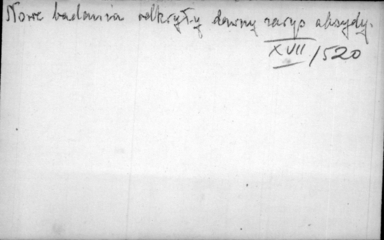 Nowe badania odkryły dawny zarys absydy.
XVII/520